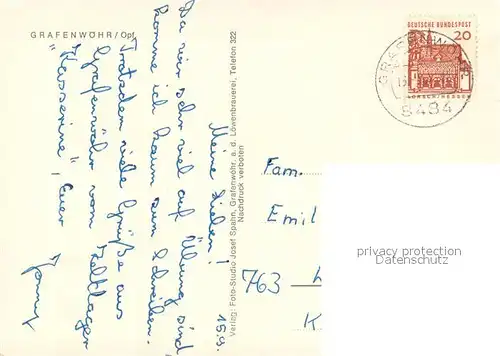 GRAFENWÖHR/Opf.
15.9.
Meine Lieben!
Da wir sehr viel auf Übung sind,
komme ich kaum zum Schreiben.
Trotzdem viele Grüße aus
Grafenwöhr vom Zeltlager
"Kasserine", Euer
Verlag: Foto-Studio Josef Spahn, Grafenwöhr, a. d. Löwenbrauerei, Telefon 322
Nachdruck verboten
DEUTSCHE BUNDESPOST
20
8484
Fam.
Emil
763
K
privacy protection
Datenschutz